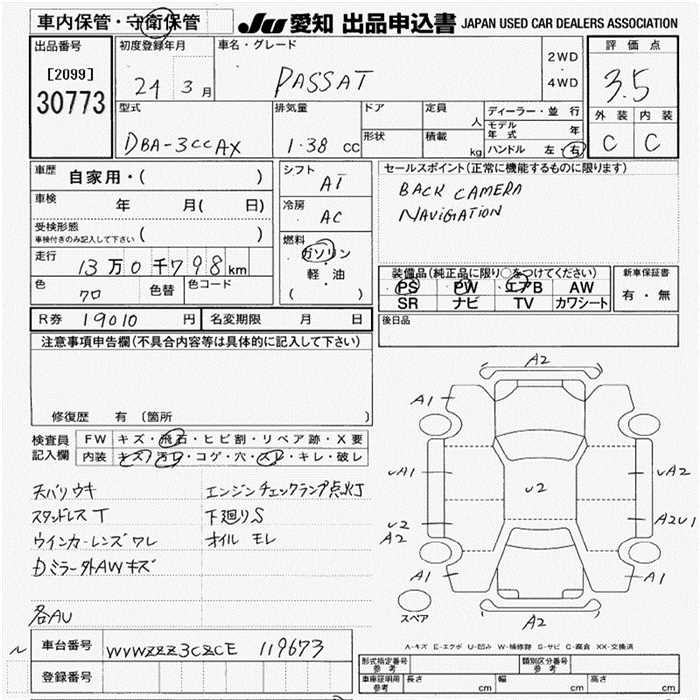 車内保管・守衛保管 JU 愛知 出品申込書 JAPAN USED CAR DEALERS ASSOCIATION
出品番号 初度登録年月 車名・グレード 評価点
[2099] 24 3月 PASSAT 2WD・4WD 3.5
30773
型式 排気量 ドア 定員 人 ディーラー・並行 外装 内装
モデル年式 年
DBA-3CCAX 1.38 cc 形状 積載 kg ハンドル 左・右 C C
車歴 自家用・( ) シフト AT セールスポイント(正常に機能するものに限ります)
車検 年 月( 日) 冷房 AC BACK CAMERA
NAVIGATION
受検形態
車検付きのみ記入して下さい ( ) 燃料 ガソリン・軽・油 ( )
走行 13万0千798km 装備品(純正品に限り○をつけてください) 新車保証書
PS PW エアB AW 有・無
色 クロ 色替 色コード SR ナビ TV カワシート
R券 19010 円 名変期限 月 日 後日品
注意事項申告欄(不具合内容等は具体的に記入して下さい)
修復歴 有 〔箇所
検査員記入欄 FW キズ・飛石・ヒビ割・リペア跡・X要
内装 キズ・汚レ・コゲ・穴・スレ・キレ・破レ
天バリウキ エンジンチェックランプ点灯
スタッドレスT 下廻りS
ウインカーレンズワレ オイルモレ
Dミラー外AWキズ
各AU
A2
A1 A1
UA1 U2 UA2
U2 A2 A2U1
A1 A1
スペア A2
A-キズ E-エクボ U-凹み W-補修跡 S-サビ C-腐食 XX-交換済
車台番号 WVWZZZ3CZCE 119673
登録番号
形式指定番号 参考 類別区分番号 参考
車庫証明用 参考 長さ cm 幅 cm 高さ cm